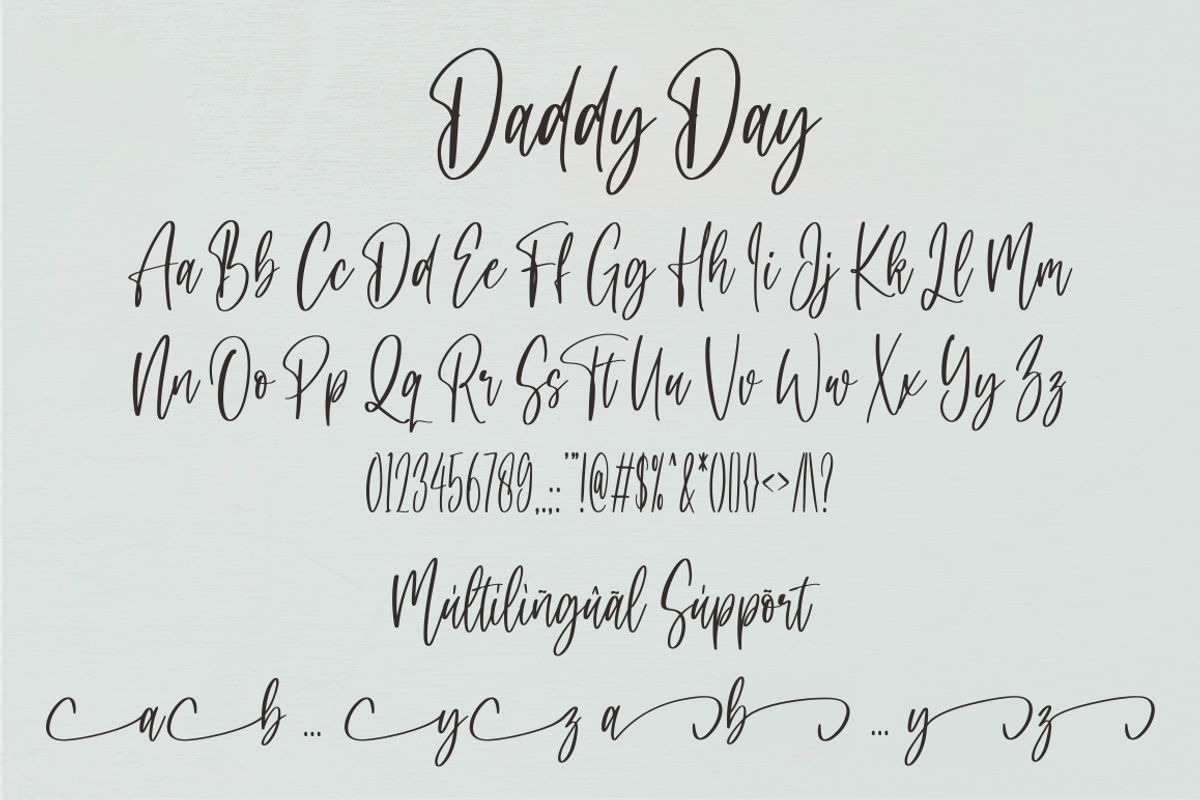 Daddy Day
Aa Bb Cc Dd Ee Ff Gg Hh Ii Jj Kk Ll Mm
Nn Oo Pp Qq Rr Ss Tt Uu Vv Ww Xx Yy Zz
0123456789,.,;:'"!@#$%^&*()[]{}<>/|\?
Múltilìñgûãl Súppõrt
a b ... y z a b ... y z